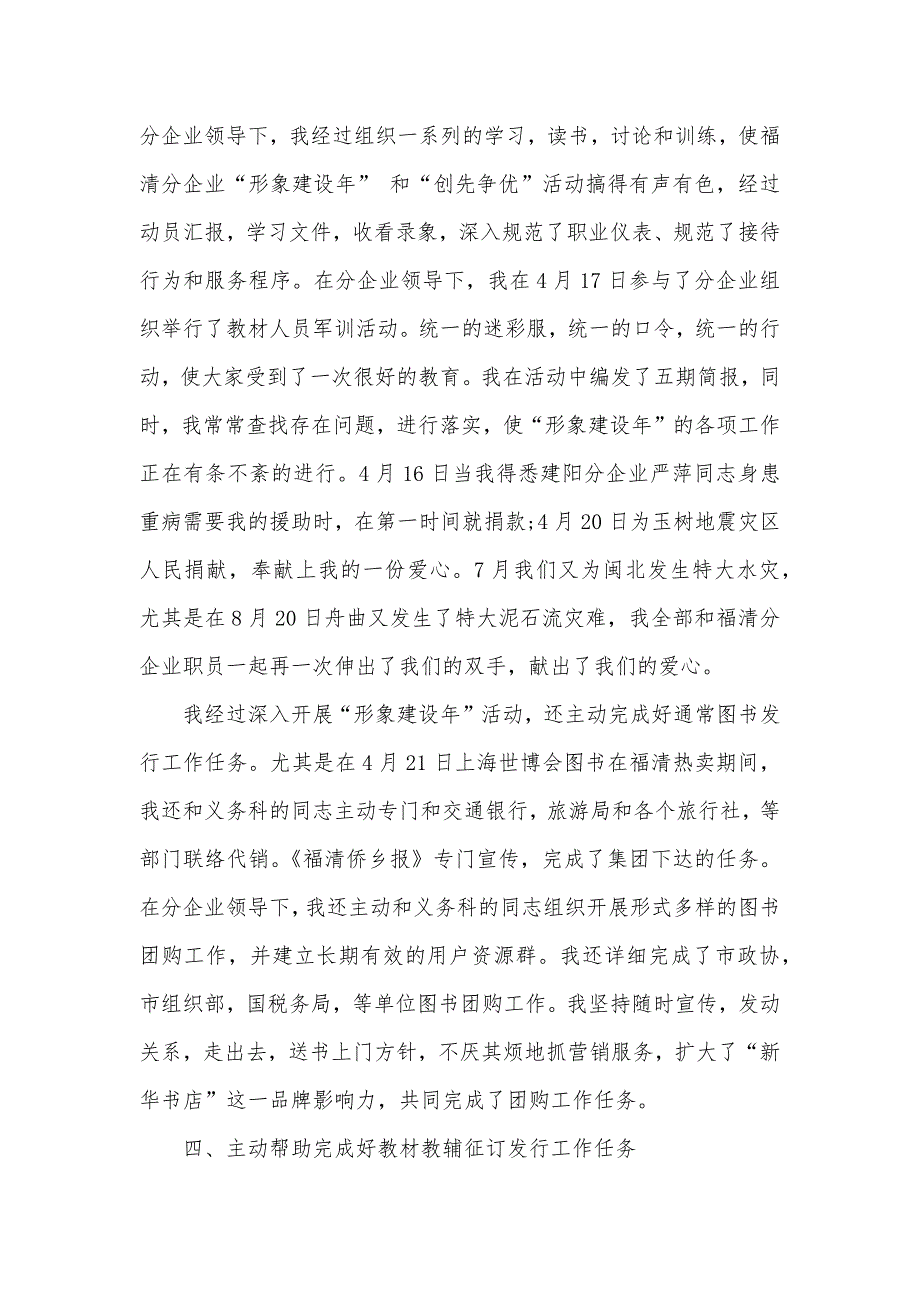 分企业领导下，我经过组织一系列的学习，读书，讨论和训练，使福
清分企业“形象建设年” 和“创先争优”活动搞得有声有色，经过
动员汇报，学习文件，收看录象，深入规范了职业仪表、规范了接待
行为和服务程序。在分企业领导下，我在4月17日参与了分企业组
织举行了教材人员军训活动。统一的迷彩服，统一的口令，统一的行
动，使大家受到了一次很好的教育。我在活动中编发了五期简报，同
时，我常常查找存在问题，进行落实，使“形象建设年”的各项工作
正在有条不紊的进行。4月16日当我得悉建阳分企业严萍同志身患
重病需要我的援助时，在第一时间就捐款;4月20日为玉树地震灾区
人民捐献，奉献上我的一份爱心。7月我们又为闽北发生特大水灾，
尤其是在8月20日舟曲又发生了特大泥石流灾难，我全部和福清分
企业职员一起再一次伸出了我们的双手，献出了我们的爱心。
我经过深入开展“形象建设年”活动，还主动完成好通常图书发
行工作任务。尤其是在4月21日上海世博会图书在福清热卖期间，
我还和义务科的同志主动专门和交通银行，旅游局和各个旅行社，等
部门联络代销。《福清侨乡报》专门宣传，完成了集团下达的任务。
在分企业领导下，我还主动和义务科的同志组织开展形式多样的图书
团购工作，并建立长期有效的用户资源群。我还详细完成了市政协，
市组织部，国税务局，等单位图书团购工作。我坚持随时宣传，发动
关系，走出去，送书上门方针，不厌其烦地抓营销服务，扩大了“新
华书店”这一品牌影响力，共同完成了团购工作任务。
四、主动帮助完成好教材教辅征订发行工作任务